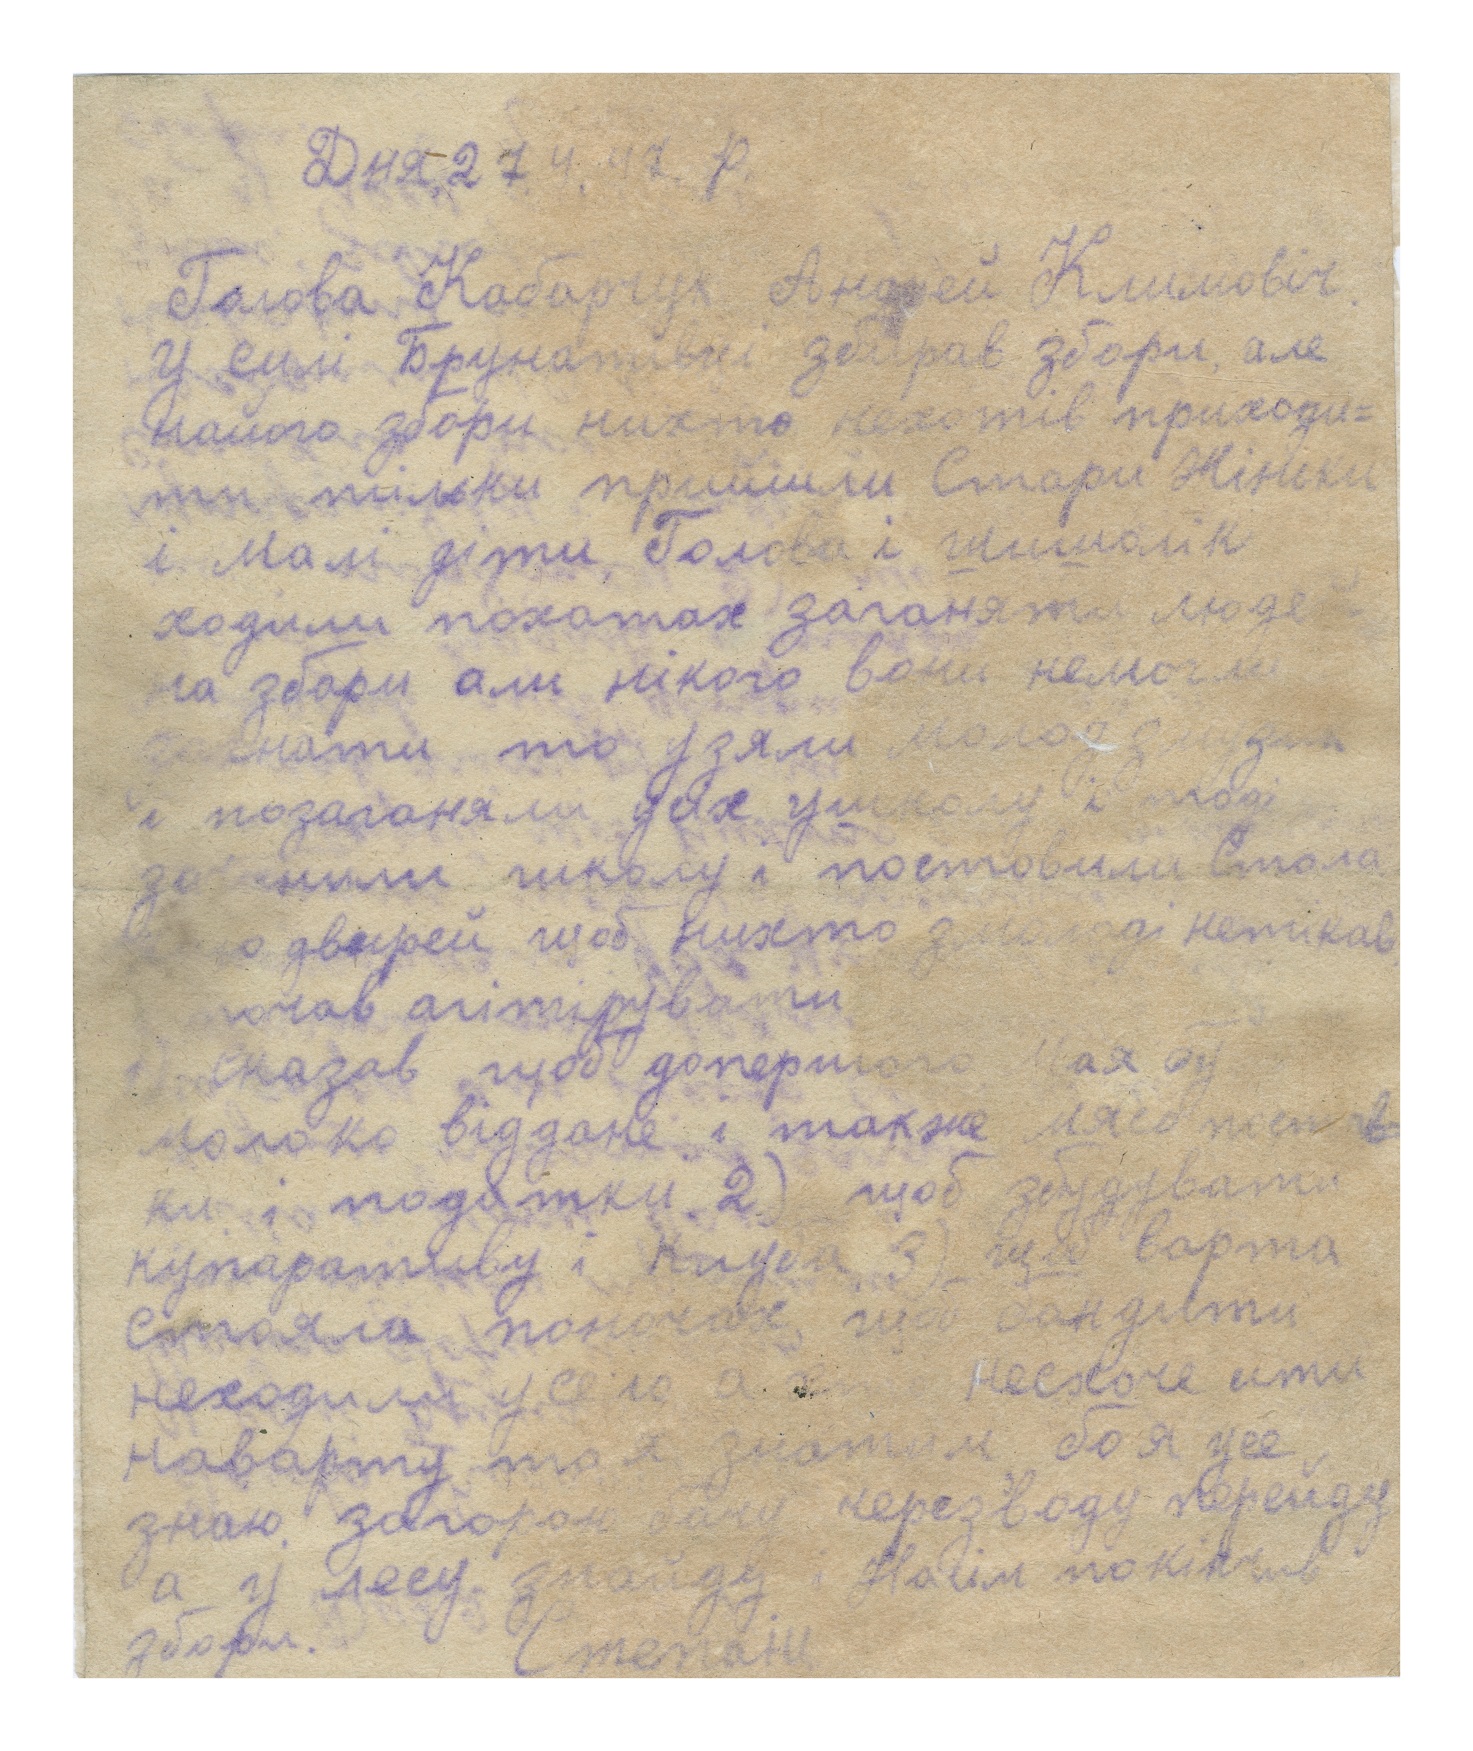 Дня 27 4. 47. р.
Голова Кабарчук Андрей Климовіч.
У силі Брунатівкі збірав збори, але
найого збори нихто нехотів приходи=
ти тильки прийшли Стари Жінки
і Малі діти, Голова і
ходили похатах заганяти людей
на збори али нікого вони немогли
то узяли
і позаганяли усіх ушколу і тоді
школу і постовили Стола
дверей щоб нихто з молоді нетікав,
почав агітірувати
1) сказав щоб допершого Мая
молоко віддане і также мясо
ки і податки 2) щоб збудувати
купаративу і Клуба 3) щоб варта
стояла поночах, щоб бандити
неходили усело а несхоче ити
наварту то я бо я усе
знаю, черезводу перейду
а у лесу знайду і Націм покінчив
збори. Степанн